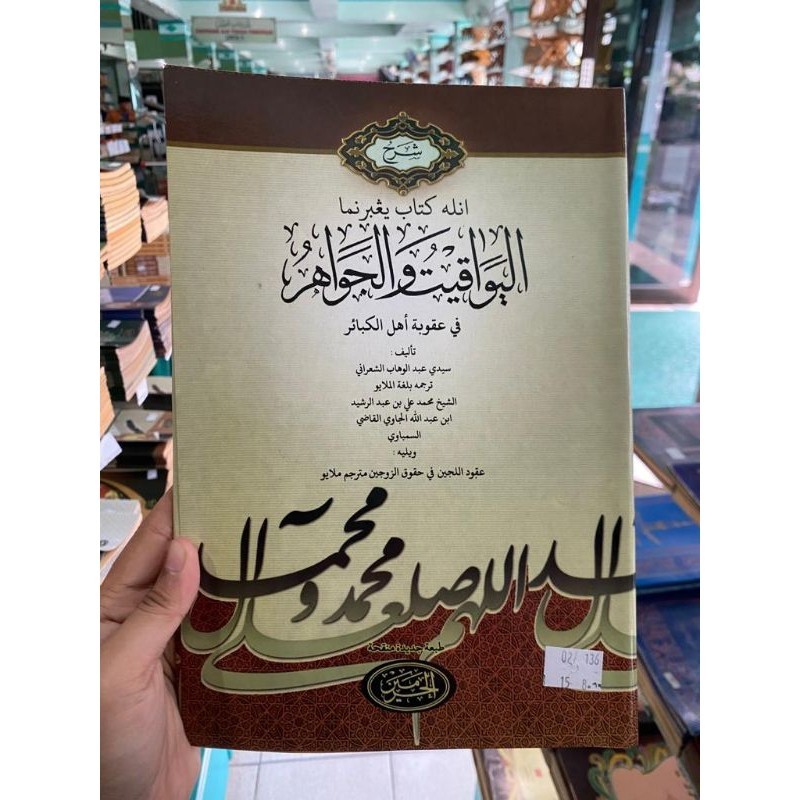 شرح
انله كتاب يڠبرنما
اليَوَاقيتُ وَالجَوَاهِرُ
في عقوبة أهل الكبائر
تأليف :
سيدي عبد الوهاب الشعراني
ترجمه بلغة الملايو
الشيخ محمد علي بن عبد الرشيد
ابن عبد الله الجاوي القاضي
السمباوي
ويليه :
عقود اللجين في حقوق الزوجين مترجم ملايو
اللهم صل على محمد و محمد
طبعة جديدة منقحة
الحرمين
02/ 136
15